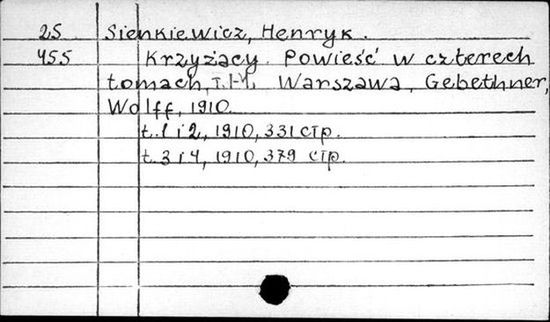 25 Sienkiewicz, Henryk.
455 Krzyżacy. Powieść w czterech
tomach, T. I-IV. Warszawa, Gebethner,
Wolff, 1910.
t. 1 i 2, 1910, 331 стр.
t. 3 i 4, 1910, 379 стр.